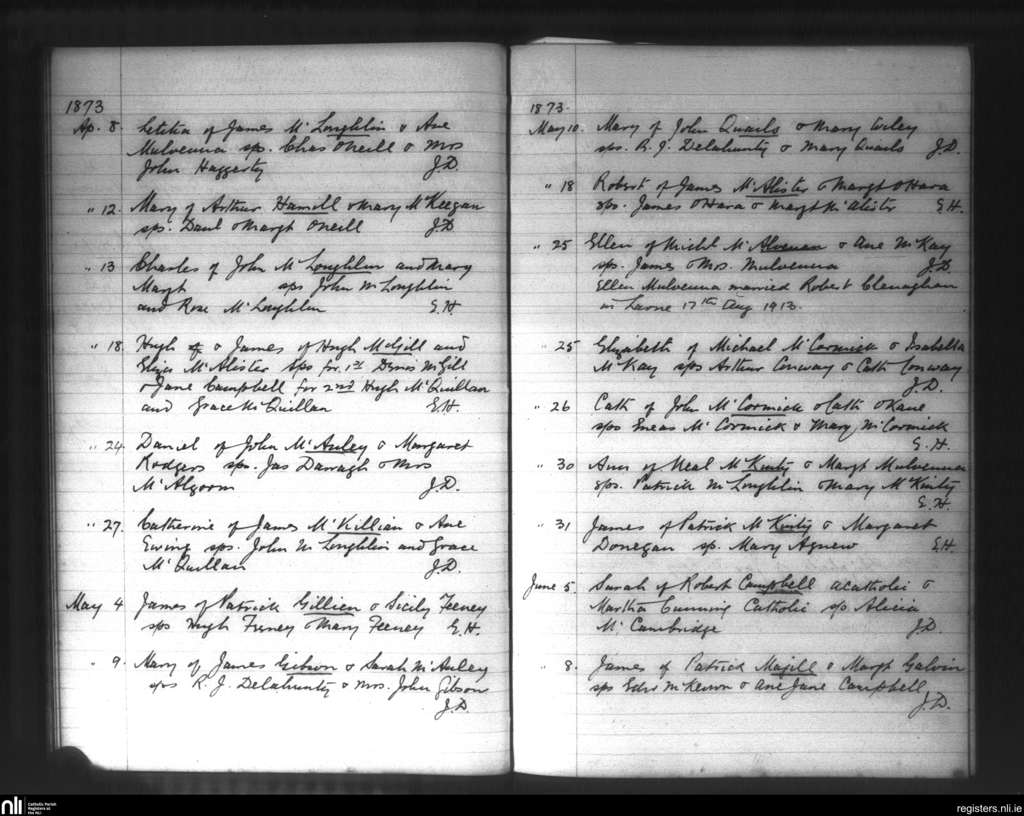 1873
Ap. 8. Letitia of James McLoughlin & Ane
Mulvenna sp. Chas ONeill & Mrs
John Haggerty J.D.
" 12. Mary of Arthur Hamill & Mary McKeegan
sps. Danl & Margt Oneill J.D.
" 13 Charles of John McLoughlin and Mary
Margt sps John McLoughlin
and Rose McLoughlin E.H.
" 18. Hugh & James of Hugh McGill and
Eliza McAlister sps for 1st Denis McGill
& Jane Campbell for 2nd Hugh McQuillan
and Grace McQuillan E.H.
" 24. Daniel of John McAuley & Margaret
Rodgers sps. Jas Darragh & Mrs
McAlgorm J.D.
" 27. Catherine of James McKillian & Ane
Ewing sps. John McLoughlin and Grace
McQuillan J.D.
May 4 James of Patrick Gillien & Sicily Feeney
sps Hugh Feeney & Mary Feeney E.H.
" 9. Mary of James Gibson & Sarah McAuley
sps R. J. Delahunty & Mrs. John Gibson
J.D.
1873.
May 10. Mary of John Quails & Mary Wiley
sps. R. J. Delahunty & Mary Quails J.D.
" 18 Robert of James McAlister & Margt OHara
sps. James OHara & Margt McAlister E.H.
" 25 Ellen of Michl McAlvenan & Ane McKay
sps. James & Mrs. Mulvenna J.D.
Ellen Mulvenna married Robert Clenaghan
in Larne 17th Aug 1913.
" 25 Elizabeth of Michael McCormick & Isabella
McKay sps Arthur Conway & Cath Conway
J.D.
" 26 Cath of John McCormick & Cath OKane
sps Eneas McCormick & Mary McCormick
E.H.
" 30 Ann of Neal McKinty & Margt Mulvenna
sps. Patrick McLoughlin & Mary McKinty
E.H.
" 31 James of Patrick McKinty & Margaret
Donegan sp. Mary Agnew E.H.
June 5. Sarah of Robert Campbell acatholic &
Martha Cunning Catholic sp Alicia
McCambridge J.D.
" 8. James of Patrick Magill & Margt Galvin
sps Edw McKeown & Ane Jane Campbell
J.D.
nli Catholic Parish
Registers at
the NLI
registers.nli.ie